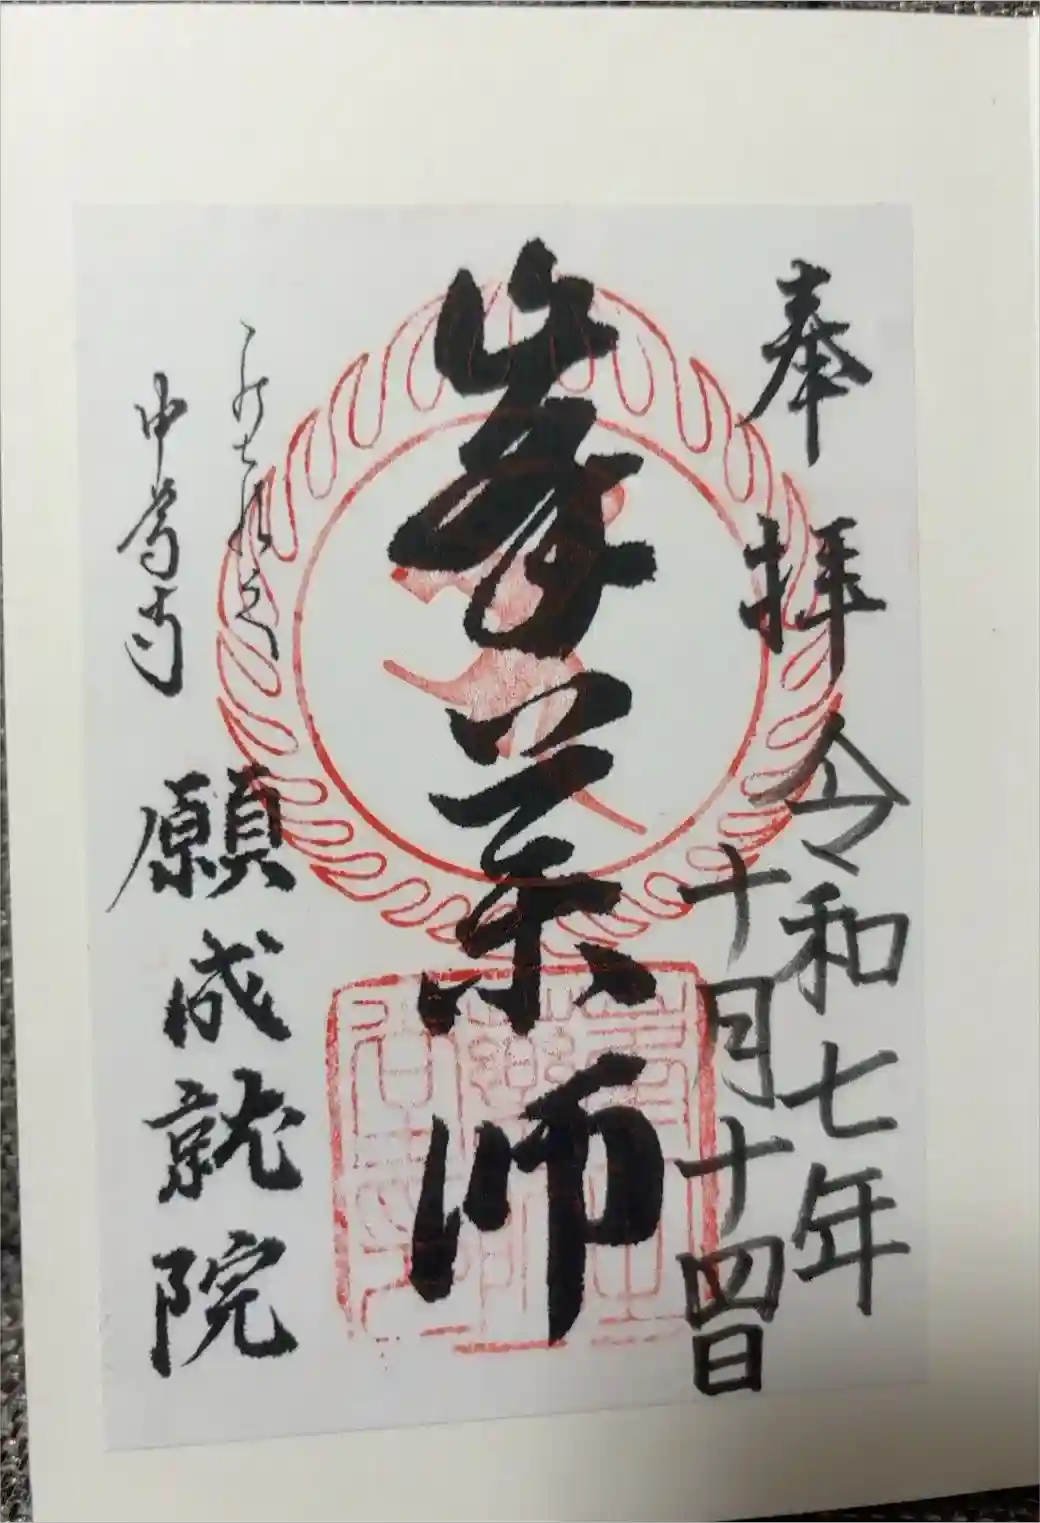 奉拝
令和七年
十月十四日
峯薬師
中尊寺
願成就院